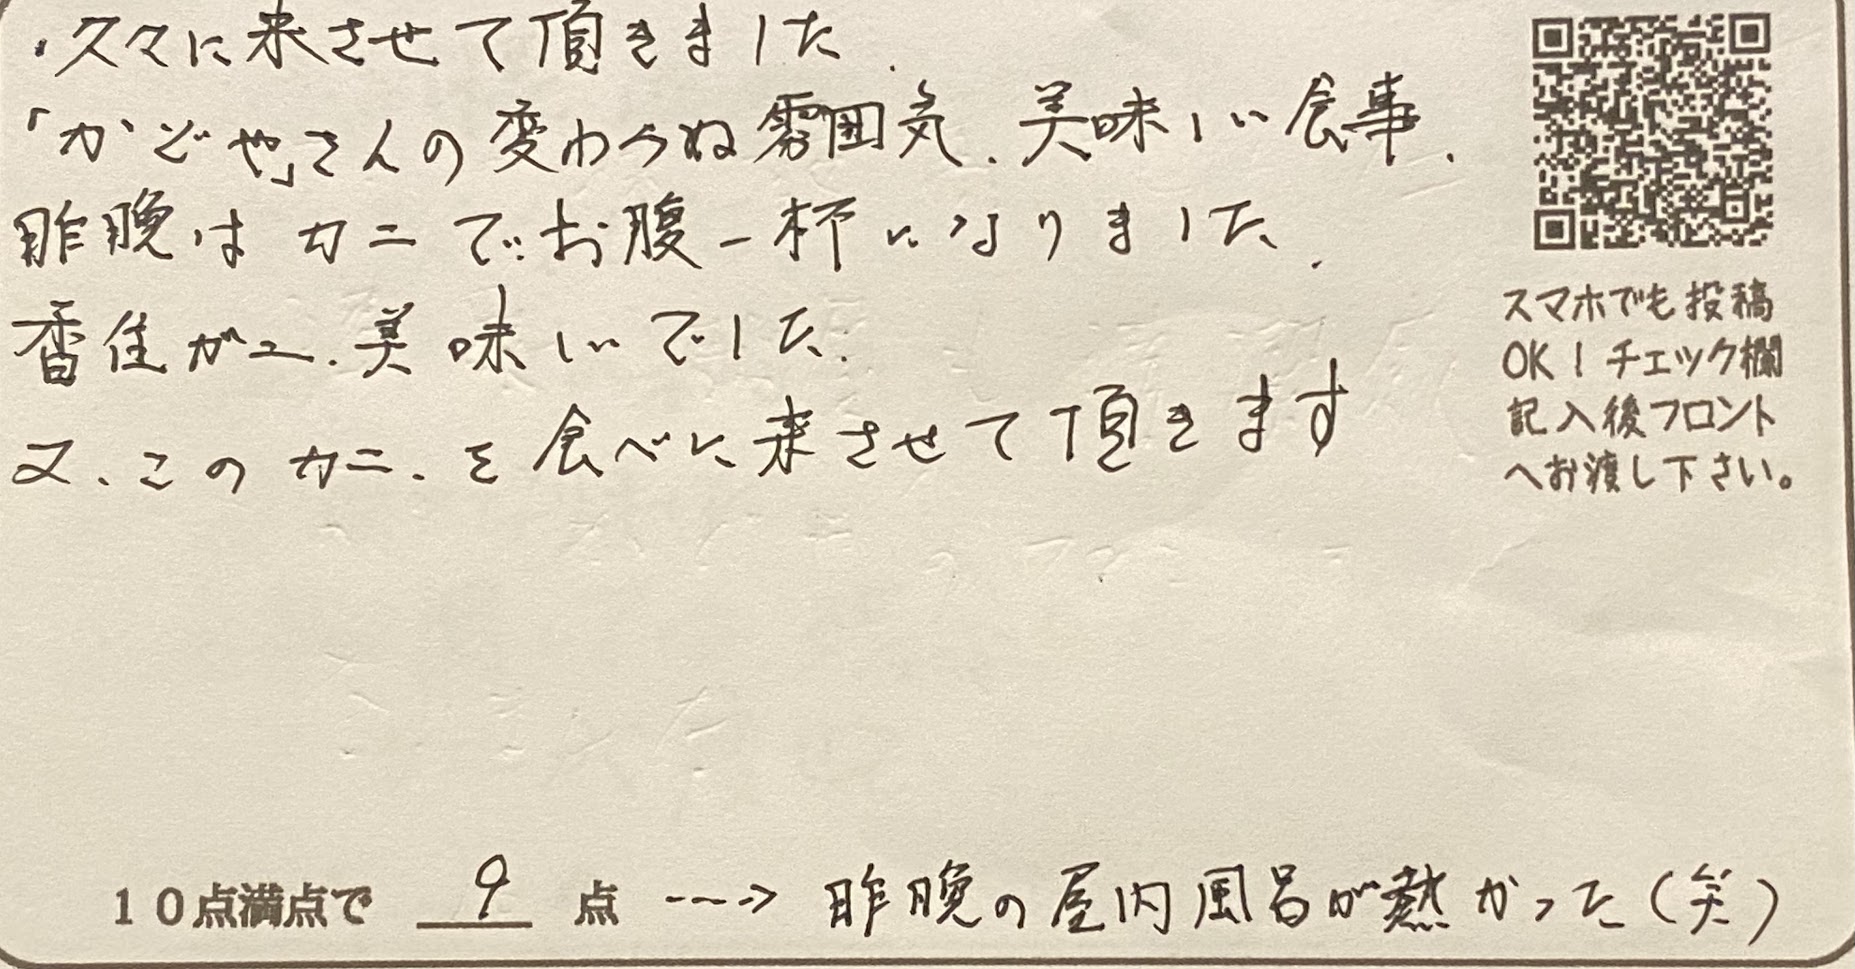 ・久々に来させて頂きました.
「かどや」さんの変わらぬ雰囲気、美味しい食事、
昨晩はカニでお腹一杯になりました.
香住がニ、美味しいでした.
又、このカニ、を食べに来させて頂きます
スマホでも投稿
OK！チェック欄
記入後フロント
へお渡し下さい。
10点満点で 9 点 ---> 昨晩の屋内風呂が熱かった(笑)